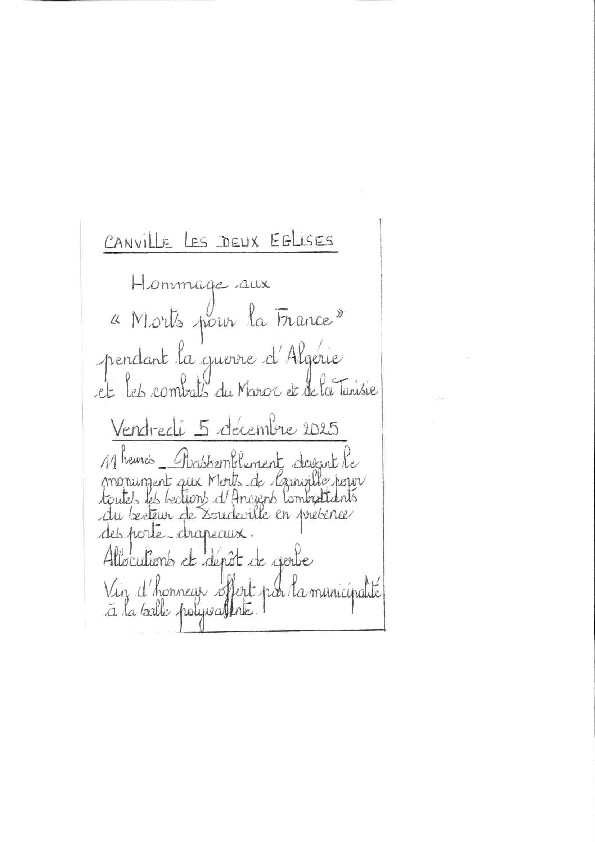 CANVILLE LES DEUX EGLISES
Hommage aux
« Morts pour la France »
pendant la guerre d'Algérie
et les combats du Maroc et de la Tunisie
Vendredi 5 décembre 2025
11 heures - Rassemblement devant le
monument aux Morts de Canville pour
toutes les sections d'Anciens Combattants
du secteur de Doudeville en présence
des porte-drapeaux.
Allocutions et dépôt de gerbe
Vin d'honneur offert par la municipalité
à la salle polyvalente.